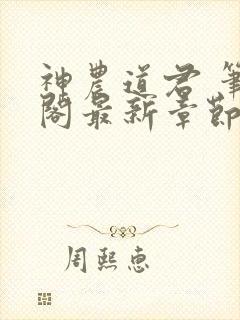 神農道君 筆
閣最新章節
周熙惠